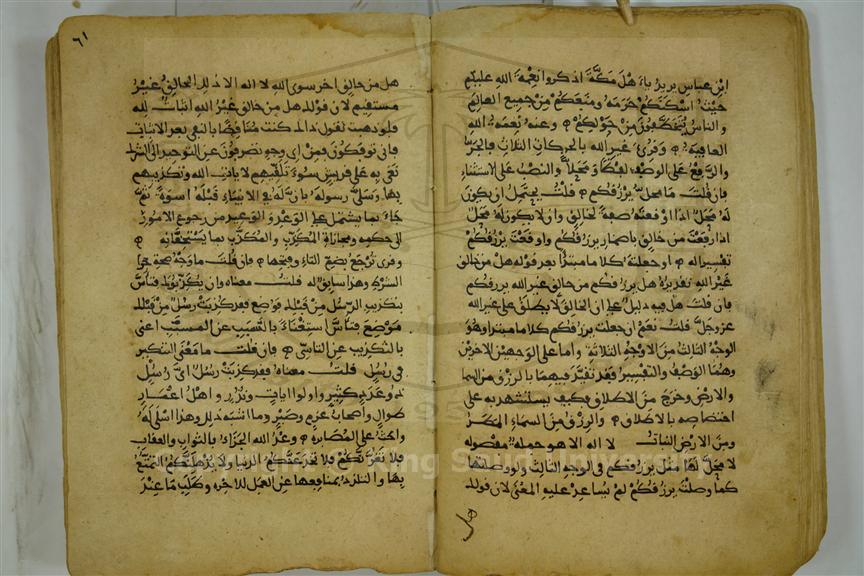 ابن عباس يريد ياء هل مكة اذكروا نعمة الله عليكم
حيث اسكنكم حرمه ومنعكم من جميع العالم
والناس يتخطفون من حولكم وعنه نعمة الله
العافية وقرئ غير الله بالحركات الثلاث فالجر
والرفع على الوصف لفظا ومحلا والنصب على الاستثناء
فان قلت ما محل يرزقكم قلت يحتمل ان يكون
له محل اذا اوقعته صفة لخالق وان لا يكون له محل
اذا رفعت من خالق باضمار يرزقكم واوقعت يرزقكم
تفسيرا له او جعلته كلاما مبتدأ بعد قوله هل من خالق
غير الله تقديره هل يرزقكم من خالق غير الله يرزقكم
فان قلت هل فيه دليل على ان الخالق لا يطلق على غير الله
عز وجل قلت نعم ان جعلت يرزقكم كلاما مبتدا وهو
الوجه الثالث من الاوجه الثلاثة واما على الوجهين الاخرين
وهما الوصف والتفسير فقد تقيد فيهما بالرزق من السما
والارض وخرج من الاطلاق فكيف يستشهد به على
اختصاصه بالاطلاق والرزق من السماء المطر
ومن الارض النبات لا اله الا هو جملة مفصولة
لا محل لها مثل يرزقكم فى الوجه الثالث ولو وصلتها
كما وصلت يرزقكم لم يساعد عليه المعنى لان قولك
هل
٦١
هل من خالق اخر سوى الله لا اله الا ذلك الخالق غير
مستقيم لان قولك هل من خالق غير الله اثبات لله
فلو ذهبت تقول ذلك كنت مناقضا بالنفى بعد الاثبات
فانى توفكون فمن اى وجه تصرفون عن التوحيد الى الشرك
نعى به على قريش سوء تلقيهم لايات الله وتكذيبهم
بها وسلى رسوله بان له فى الانبياء قبله اسوة ثم
جاء بما يشتمل على الوعد والوعيد من رجوع الامور
الى حكمه ومجازاة المكذب والمكذب بما يستحقانه
وقرئ ترجع بضم التاء وفتحها فان قلت ما وجه صحة جزا
الشرط وهذا سابق له قلت معناه وان يكذبوك فتأس
بتكذيب الرسل من قبلك فوضع فقد كذبت رسل من قبلك
موضع فتأس استغناء بالسبب عن المسبب اعنى
بالتكذيب عن التاسى فان قلت ما معنى التنكير
فى رسل قلت معناه فقد كذبت رسل اى رسل
ذو عدد كثير واولوا ايات ونذر واهل اعمار
طوال واصحاب عزم وصبر وما اشبه ذلك وهذا اسلى له
واحث على المصابره وعد الله الجزاء بالثواب والعقاب
فلا تغرنكم فلا تخدعنكم الدنيا ولا يذهلنكم التمتع
بها والتلذذ بمنافعها عن العمل للاخره وطلب ما عند